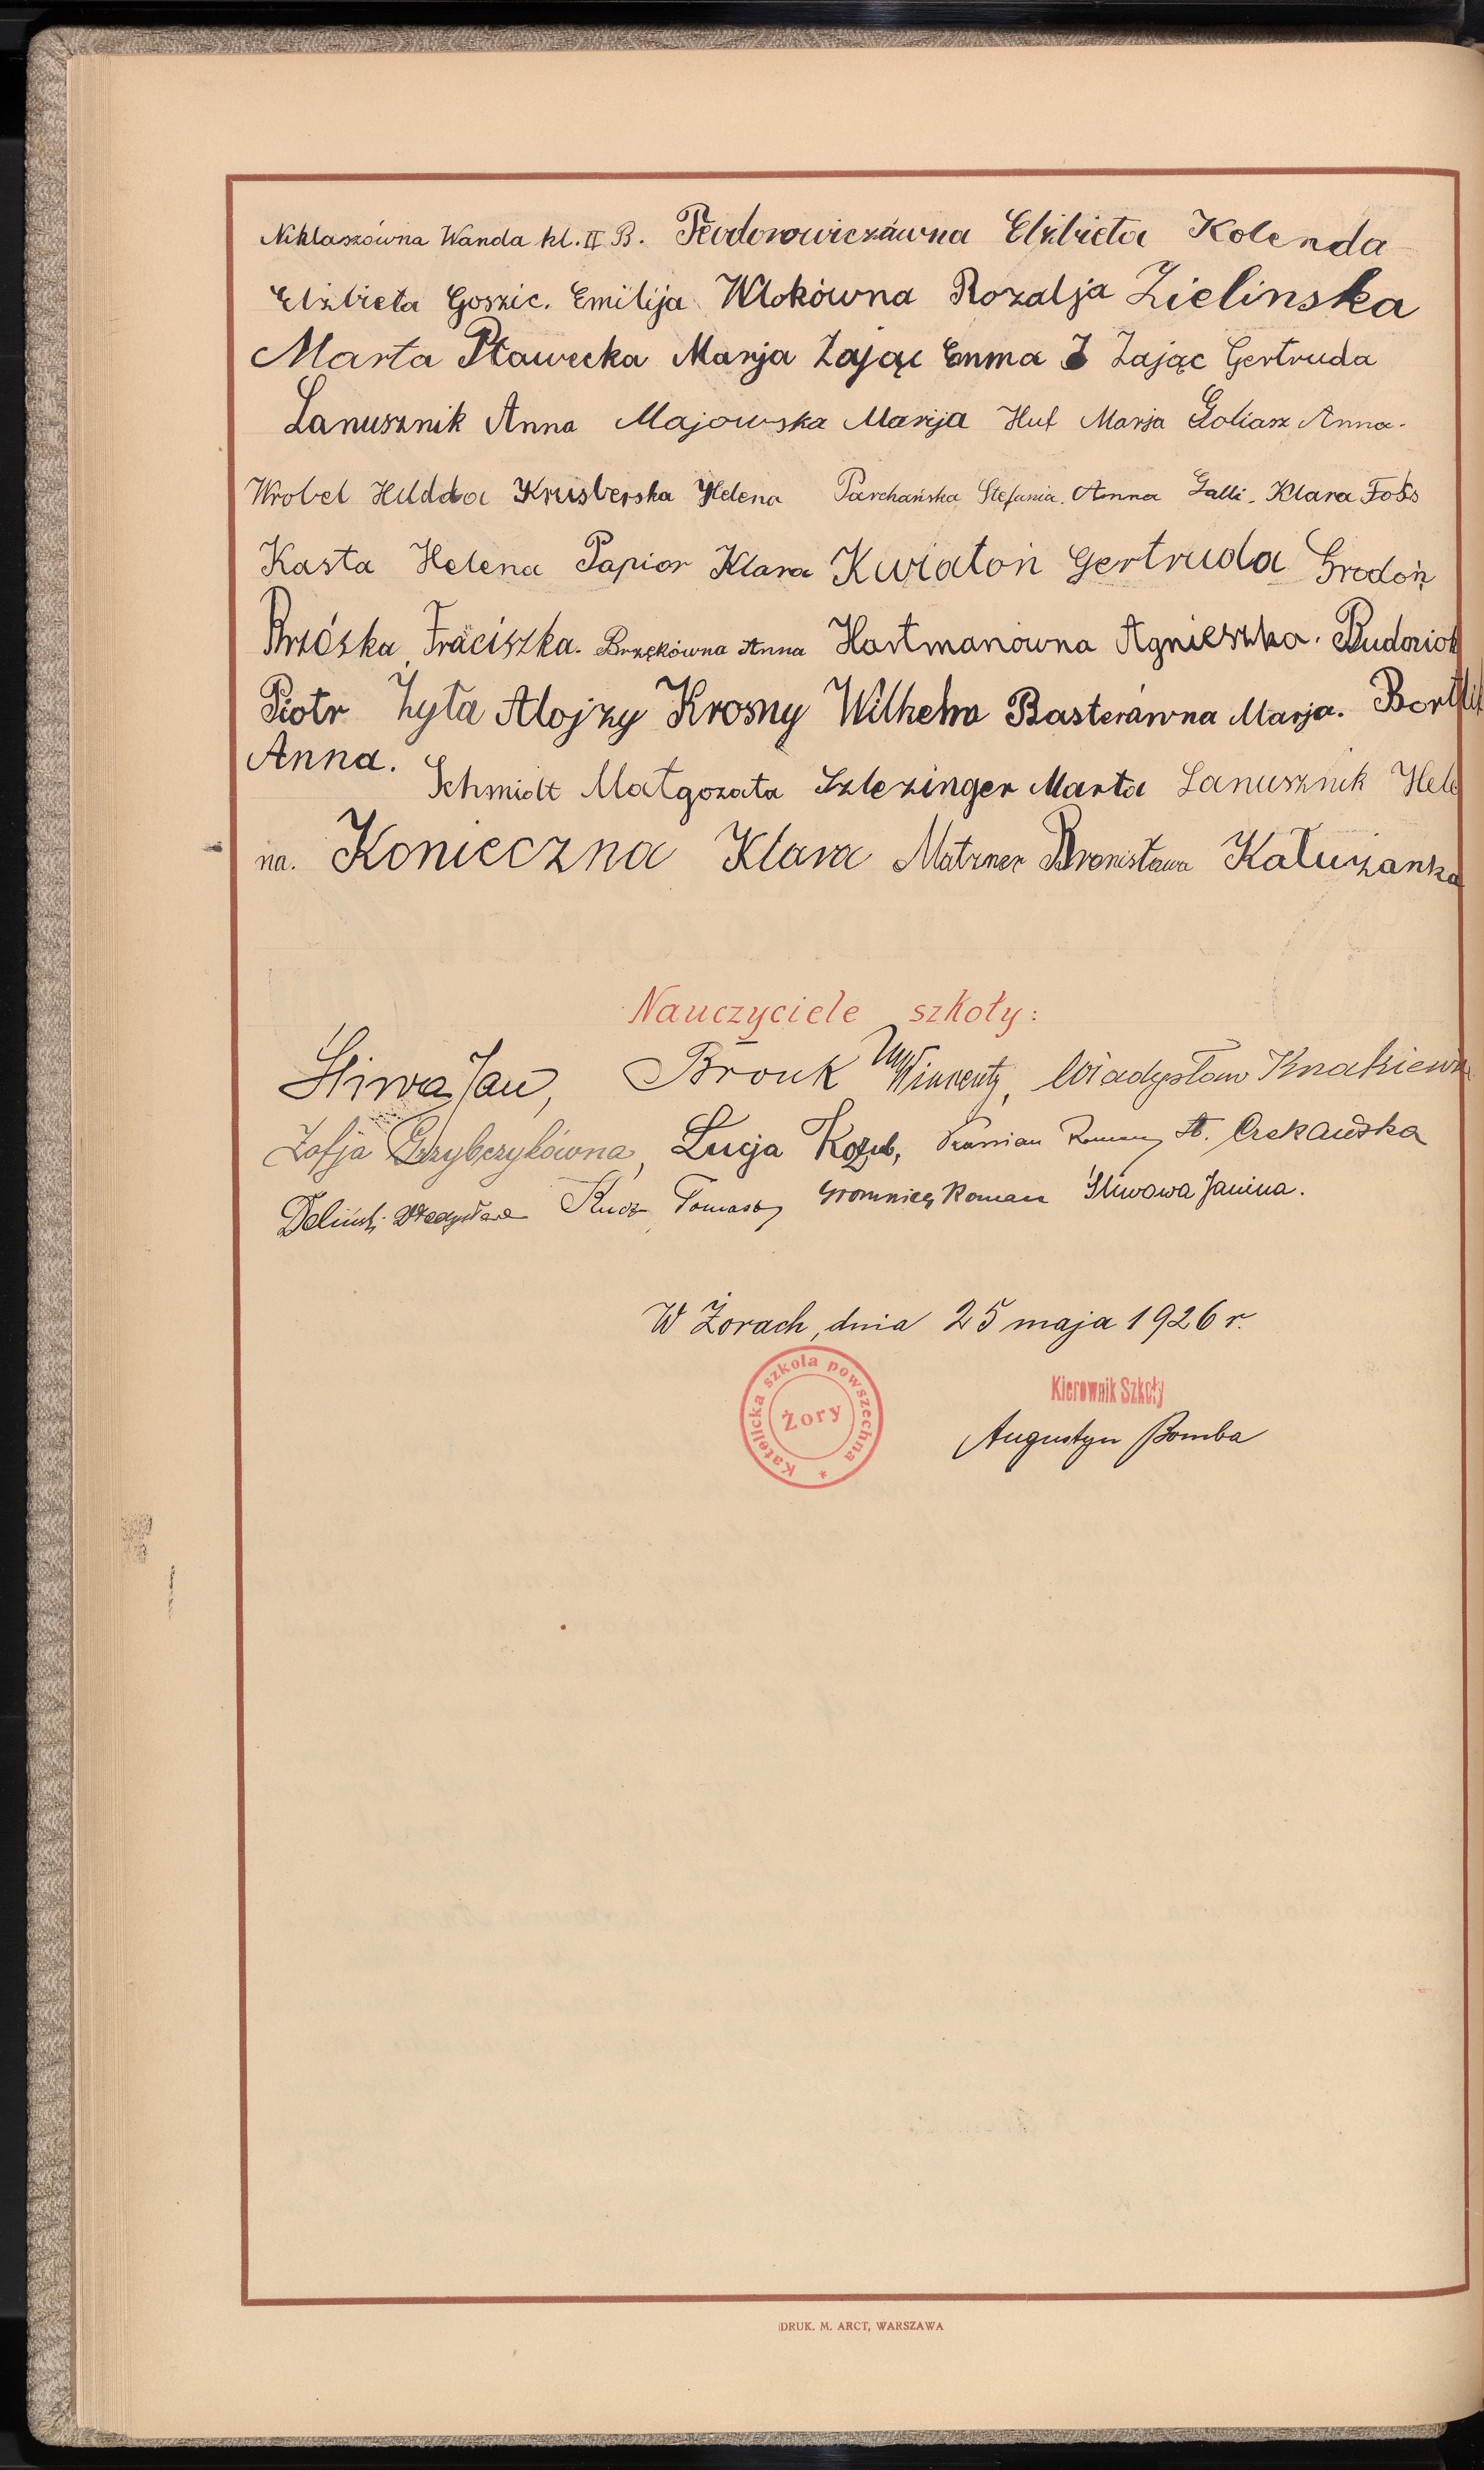 Niklaszówna Wanda kl. II B. Teodorowiczówna Elżbieta Kolenda
Elżbieta Goszic. Emilija Wlokówna Rozalja Zielinska
Marta Pławecka Marija Zając Emma Zając Gertruda
Lanusznik Anna Majowska Marija Huf Marja Goliasz Anna.
Wrobel Hildda Krusberska Helena Parchańska Stefania. Anna Galli. Klara Foss
Kasta Helena Papior Klara Kwiatoń Gertruda Grodoń
Brzóska Fraciszka. Brzękówna Anna Hartmanówna Agnieszka. Budziok
Piotr Żyła Alojzy Krosny Wilhelm Basterówna Marja. Bortlik
Anna. Schmidt Małgozata Szlezinger Marta Lanusznik Hele
na. Konieczna Klara Matzner Bronisława Kałużanka
Nauczyciele szkoły:
Śliwa Jan, Brouk Wincenty, Władysław
Zofja Grzybczykówna, Łucja Kozub, Roman St. Czekańska
Deliński Władysław Kucz Tomasz Gromnicy Roman Śliwowa Janina.
W Żorach, dnia 25 maja 1926 r.
Katolicka szkola powszechna * Żory
Kierownik Szkoły
Augustyn Bomba
DRUK. M. ARCT, WARSZAWA